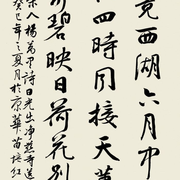 竟西湖六月中
四時同接天蓮
碧映日荷花別
宋人楊萬里詩曉出净慈寺送
癸巳年之夏月於京華苗培红